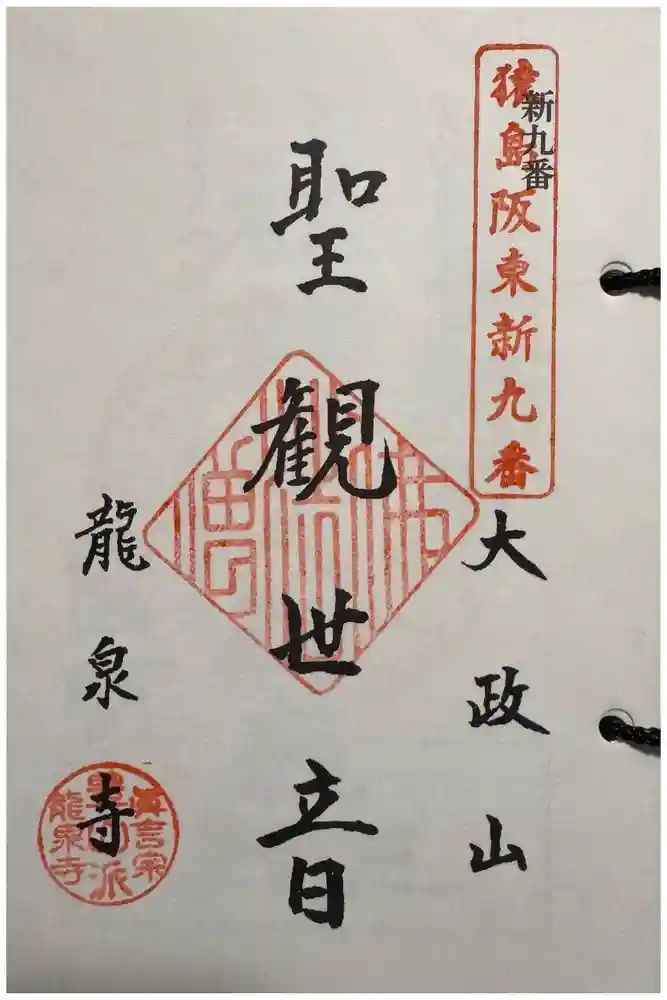 猿島阪東新九番
新九番
大政山
聖観世音
龍泉寺
真言宗
豊山派
龍泉寺